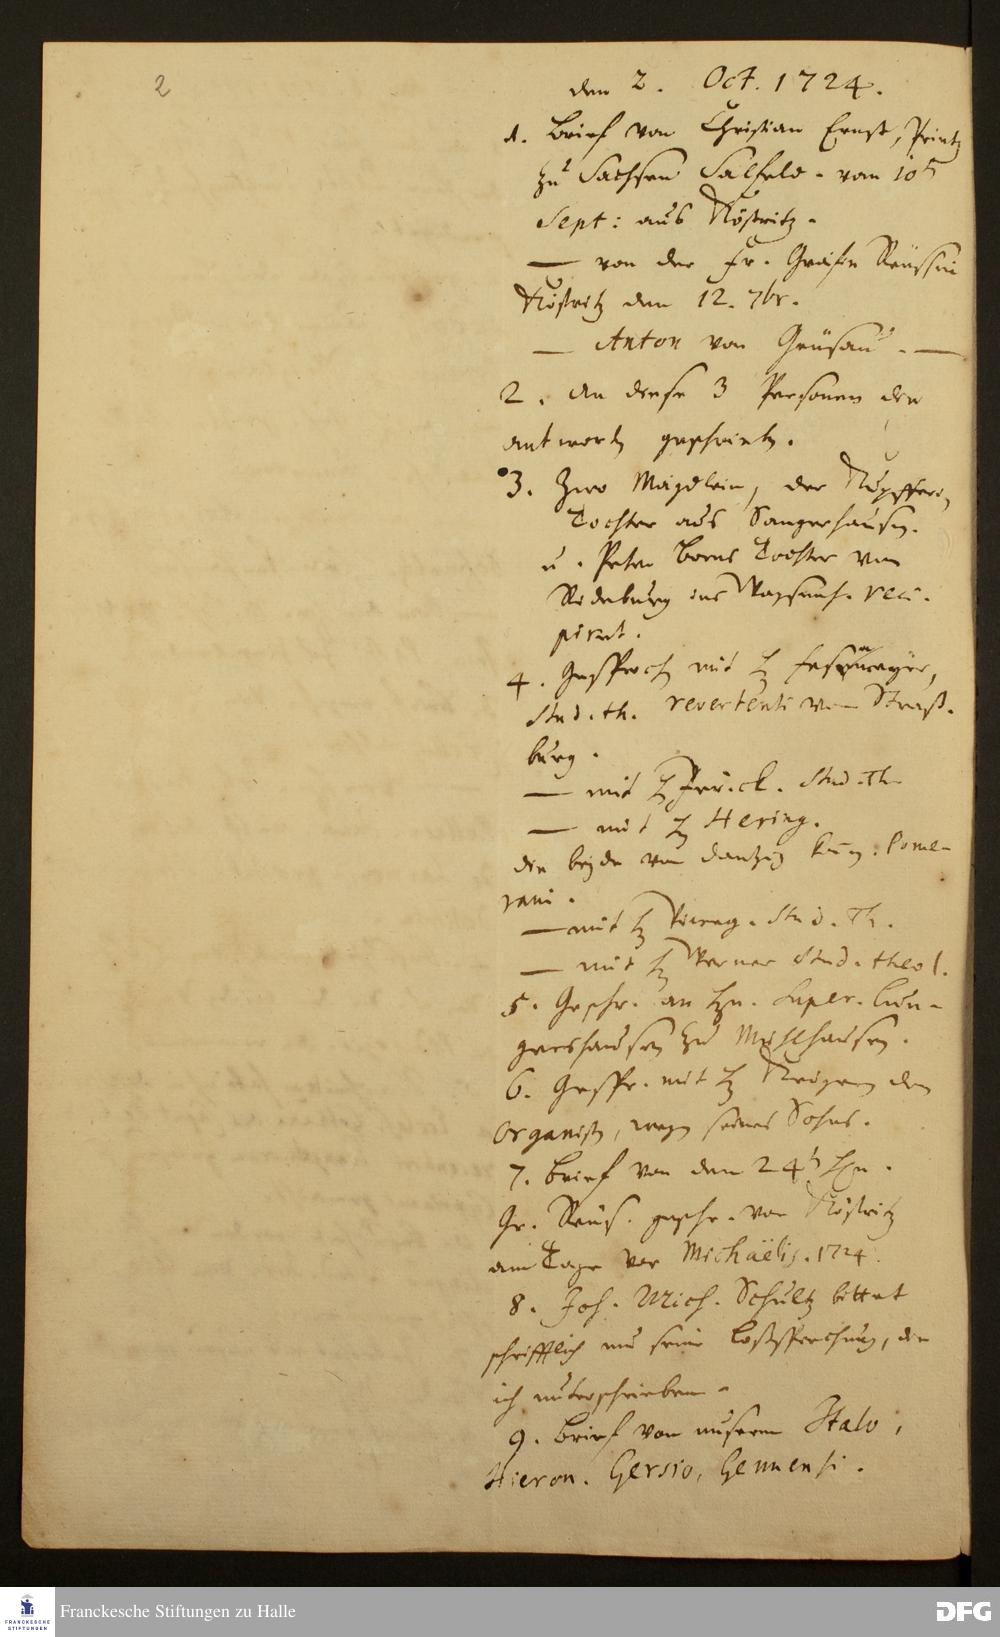 2
den 2. Oct. 1724.
1. Brief von Christian Ernst, Printz
zu Sachsen Salfeld. vom 10t
Sept: aus Köstritz.
— von der Fr. Gräfin Reüssin
Köstritz den 12. 7br.
— Anton von Geüsau. —
2. An diese 3 Personen die
antworten geschrieben.
3. Zwo Mägdlein, der
Tochter aus Sangerhausen.
u. Peter Borns Tochter von
Rideburg ins Waysenh. reci-
piret.
4. Gesproch mit H
Stud. th. revertenti von Straß-
burg.
— mit H Stud. Th.
— mit H Hering.
die beyde von Dantzig kom̄. Pome-
rani.
— mit H Stud. Th.
— mit H Werner Stud. theol.
5. Geschr. an Hn. Super.
zu Mühlhausen.
6. Gespr. mit H den
Organist, wegen seines Sohns.
7. Brief von dem 24t Hn.
Gr. Reüs. geschr. von Köstritz
am Tage vor Michaëlis. 1724.
8. Joh. Mich. Schultz bittet
schrifftlich um seine Loßsprechung, die
ich unterschrieben.
9. Brief von unserm Italo,
Hieron. Gersio, Genuensi.
Franckesche Stiftungen zu Halle
FRANCKESCHE
STIFTUNGEN
DFG